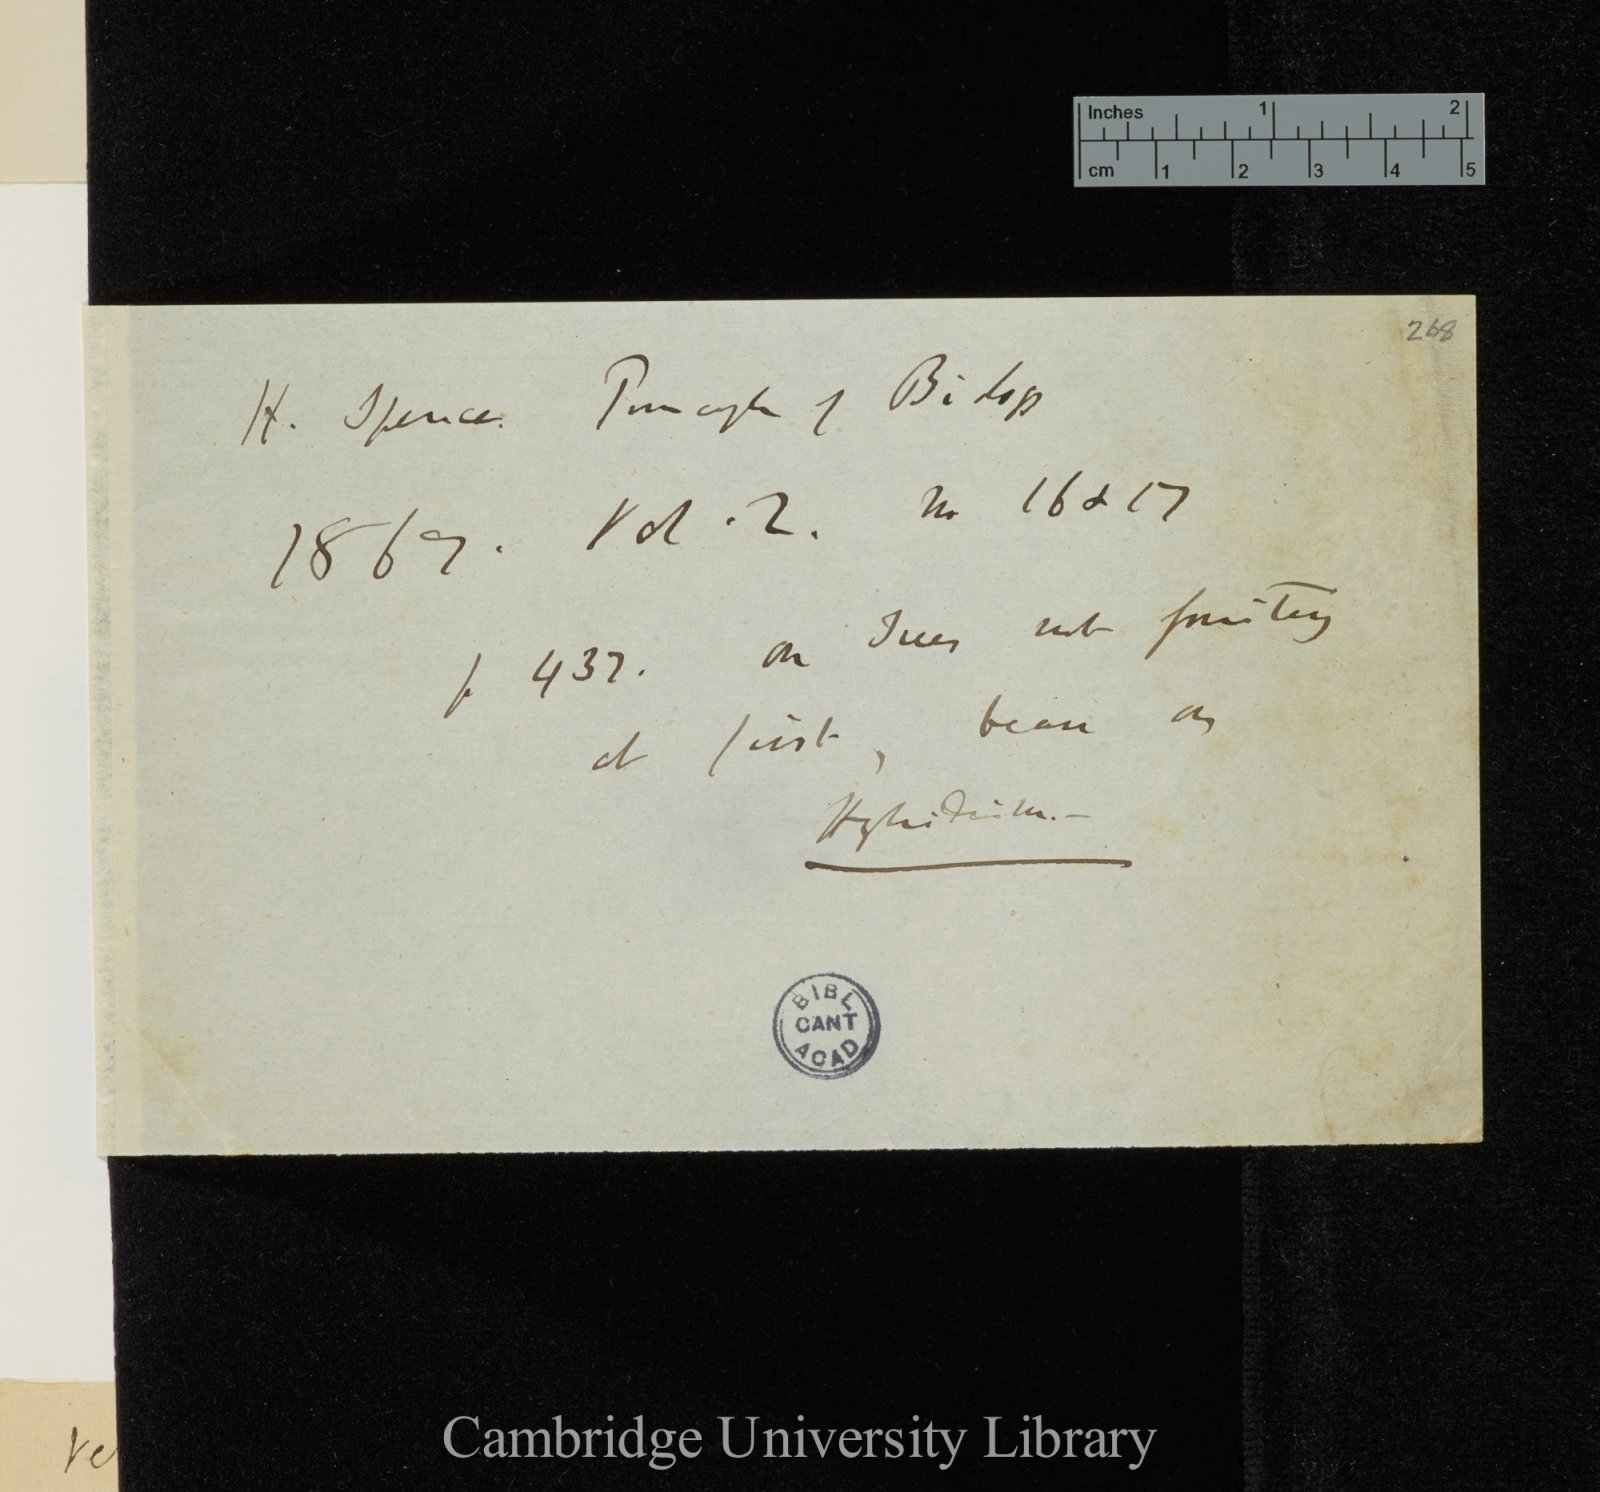 268
Inches 1 2
cm 1 2 3 4 5
H. Spencer Principles of Biology
1867. Vol. 2. No 16 & 17
p 437. on Trees not fruiting
at first, bears on
Hybridism.—
BIBL
CANT
ACAD
Ve
Cambridge University Library